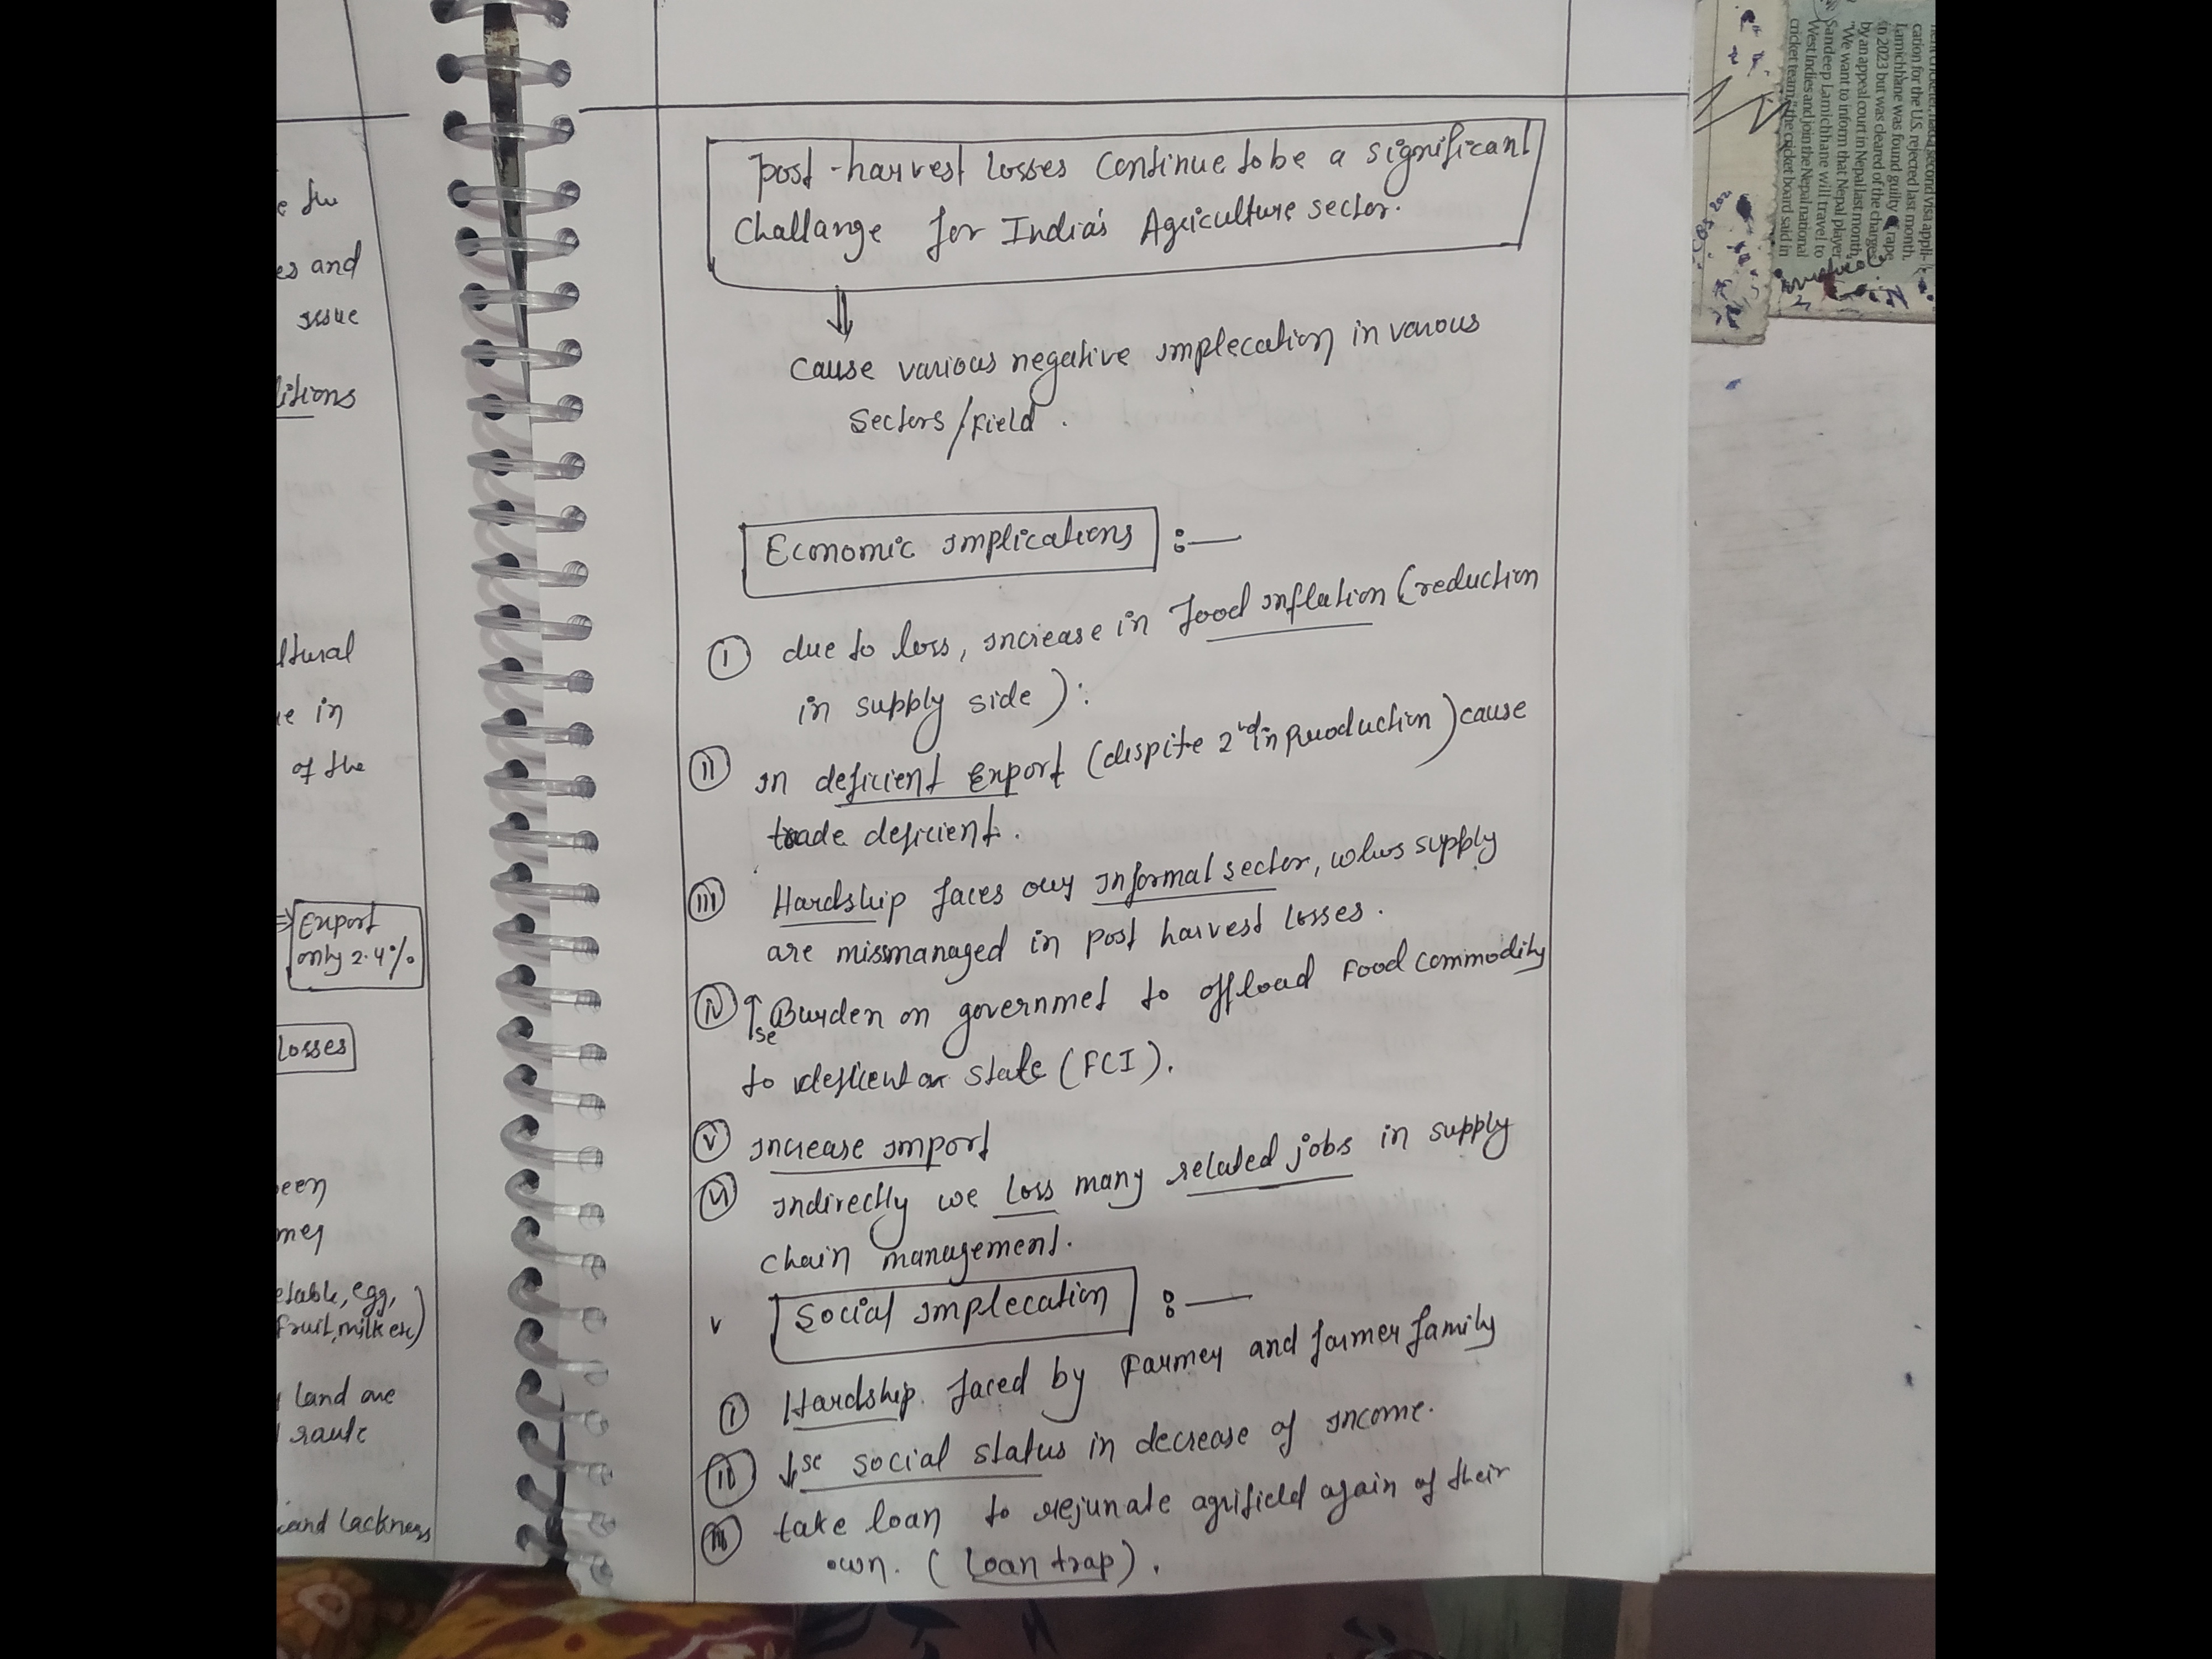 e the
es and
issue
ditions
ltural
ue in
of the
Export
only 2.4%
losses
been
etable, egg,
fruit, milk etc)
land are
and lackness
Post-harvest losses continue to be a significant
Challange for India's Agriculture sector.
Cause various negative implecation in varous
Sectors/Field.
Economic implications :—
(i) due to loss, increase in food inflation (reduction
in supply side):
(ii) in deficient Export (despite 2nd in production) cause
trade deficient.
(iii) Hardship faces our informal sector, whos supply
are missmanaged in post harvest losses.
(iv) ↑se Burden on governmet to offload food commodity
to deficient state (FCI).
(v) increase import
(vi) indirectly we loss many related jobs in supply
chain management.
v Social implecation :—
(i) Hardship faced by Farmer and farmer family
(ii) ↓se social status in decrease of income.
(iii) take loan to rejunate agrifield again of their
own. (Loan trap).
nent cricketer, had a second visa appli-
cation for the U.S. rejected last month.
Lamichhane was found guilty of rape
in 2023 but was cleared of the charges
by an appeal court in Nepal last month.
"We want to inform that Nepal player
Sandeep Lamichhane will travel to
West Indies and join the Nepal national
cricket team," the cricket board said in